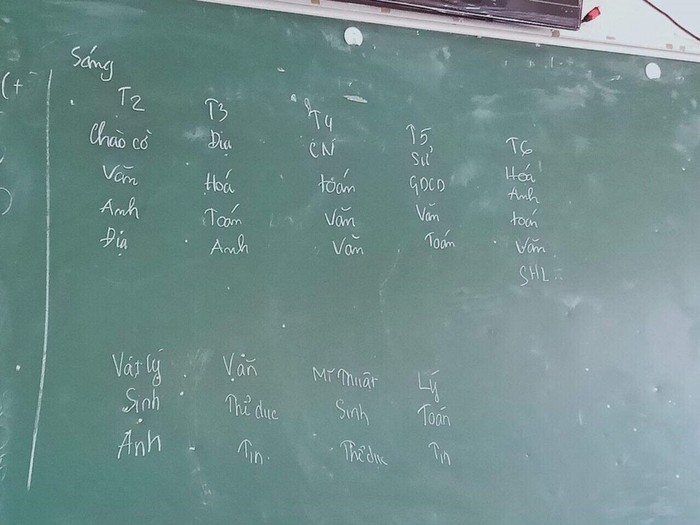 Sáng
T2 T3 T4 T5 T6
Chào cờ Địa CN Sử Hoá
Văn Hoá toán GDCD Anh
Anh Toán Văn Văn toán
Địa Anh Văn Toán Văn
SHL
Vật lý Văn Mĩ Thuật Lý
Sinh Thể dục Sinh Toán
Anh Tin Thể dục Tin